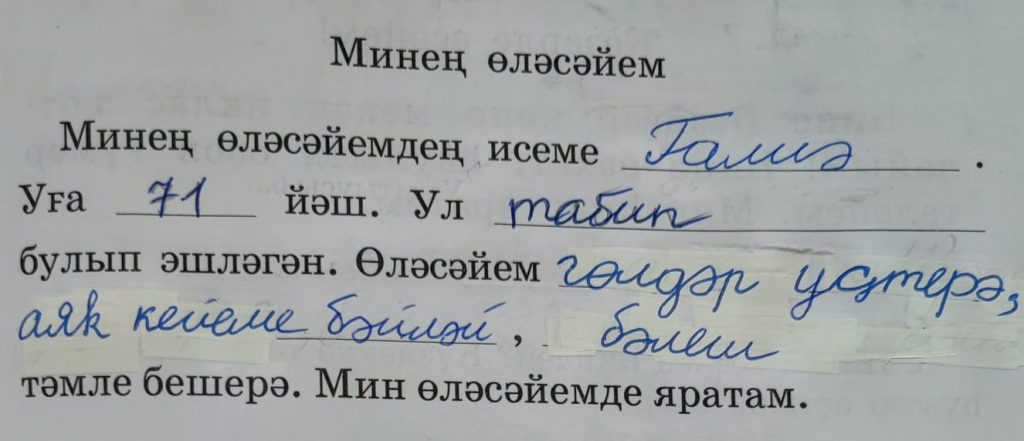 Минең өләсәйем
Минең өләсәйемдең исеме Галиә .
Уға 71 йәш. Ул табип
булып эшләгән. Өләсәйем гөлдәр үҫтерә,
аяк кейеме бәйләй , бәлеш
тәмле бешерә. Мин өләсәйемде яратам.